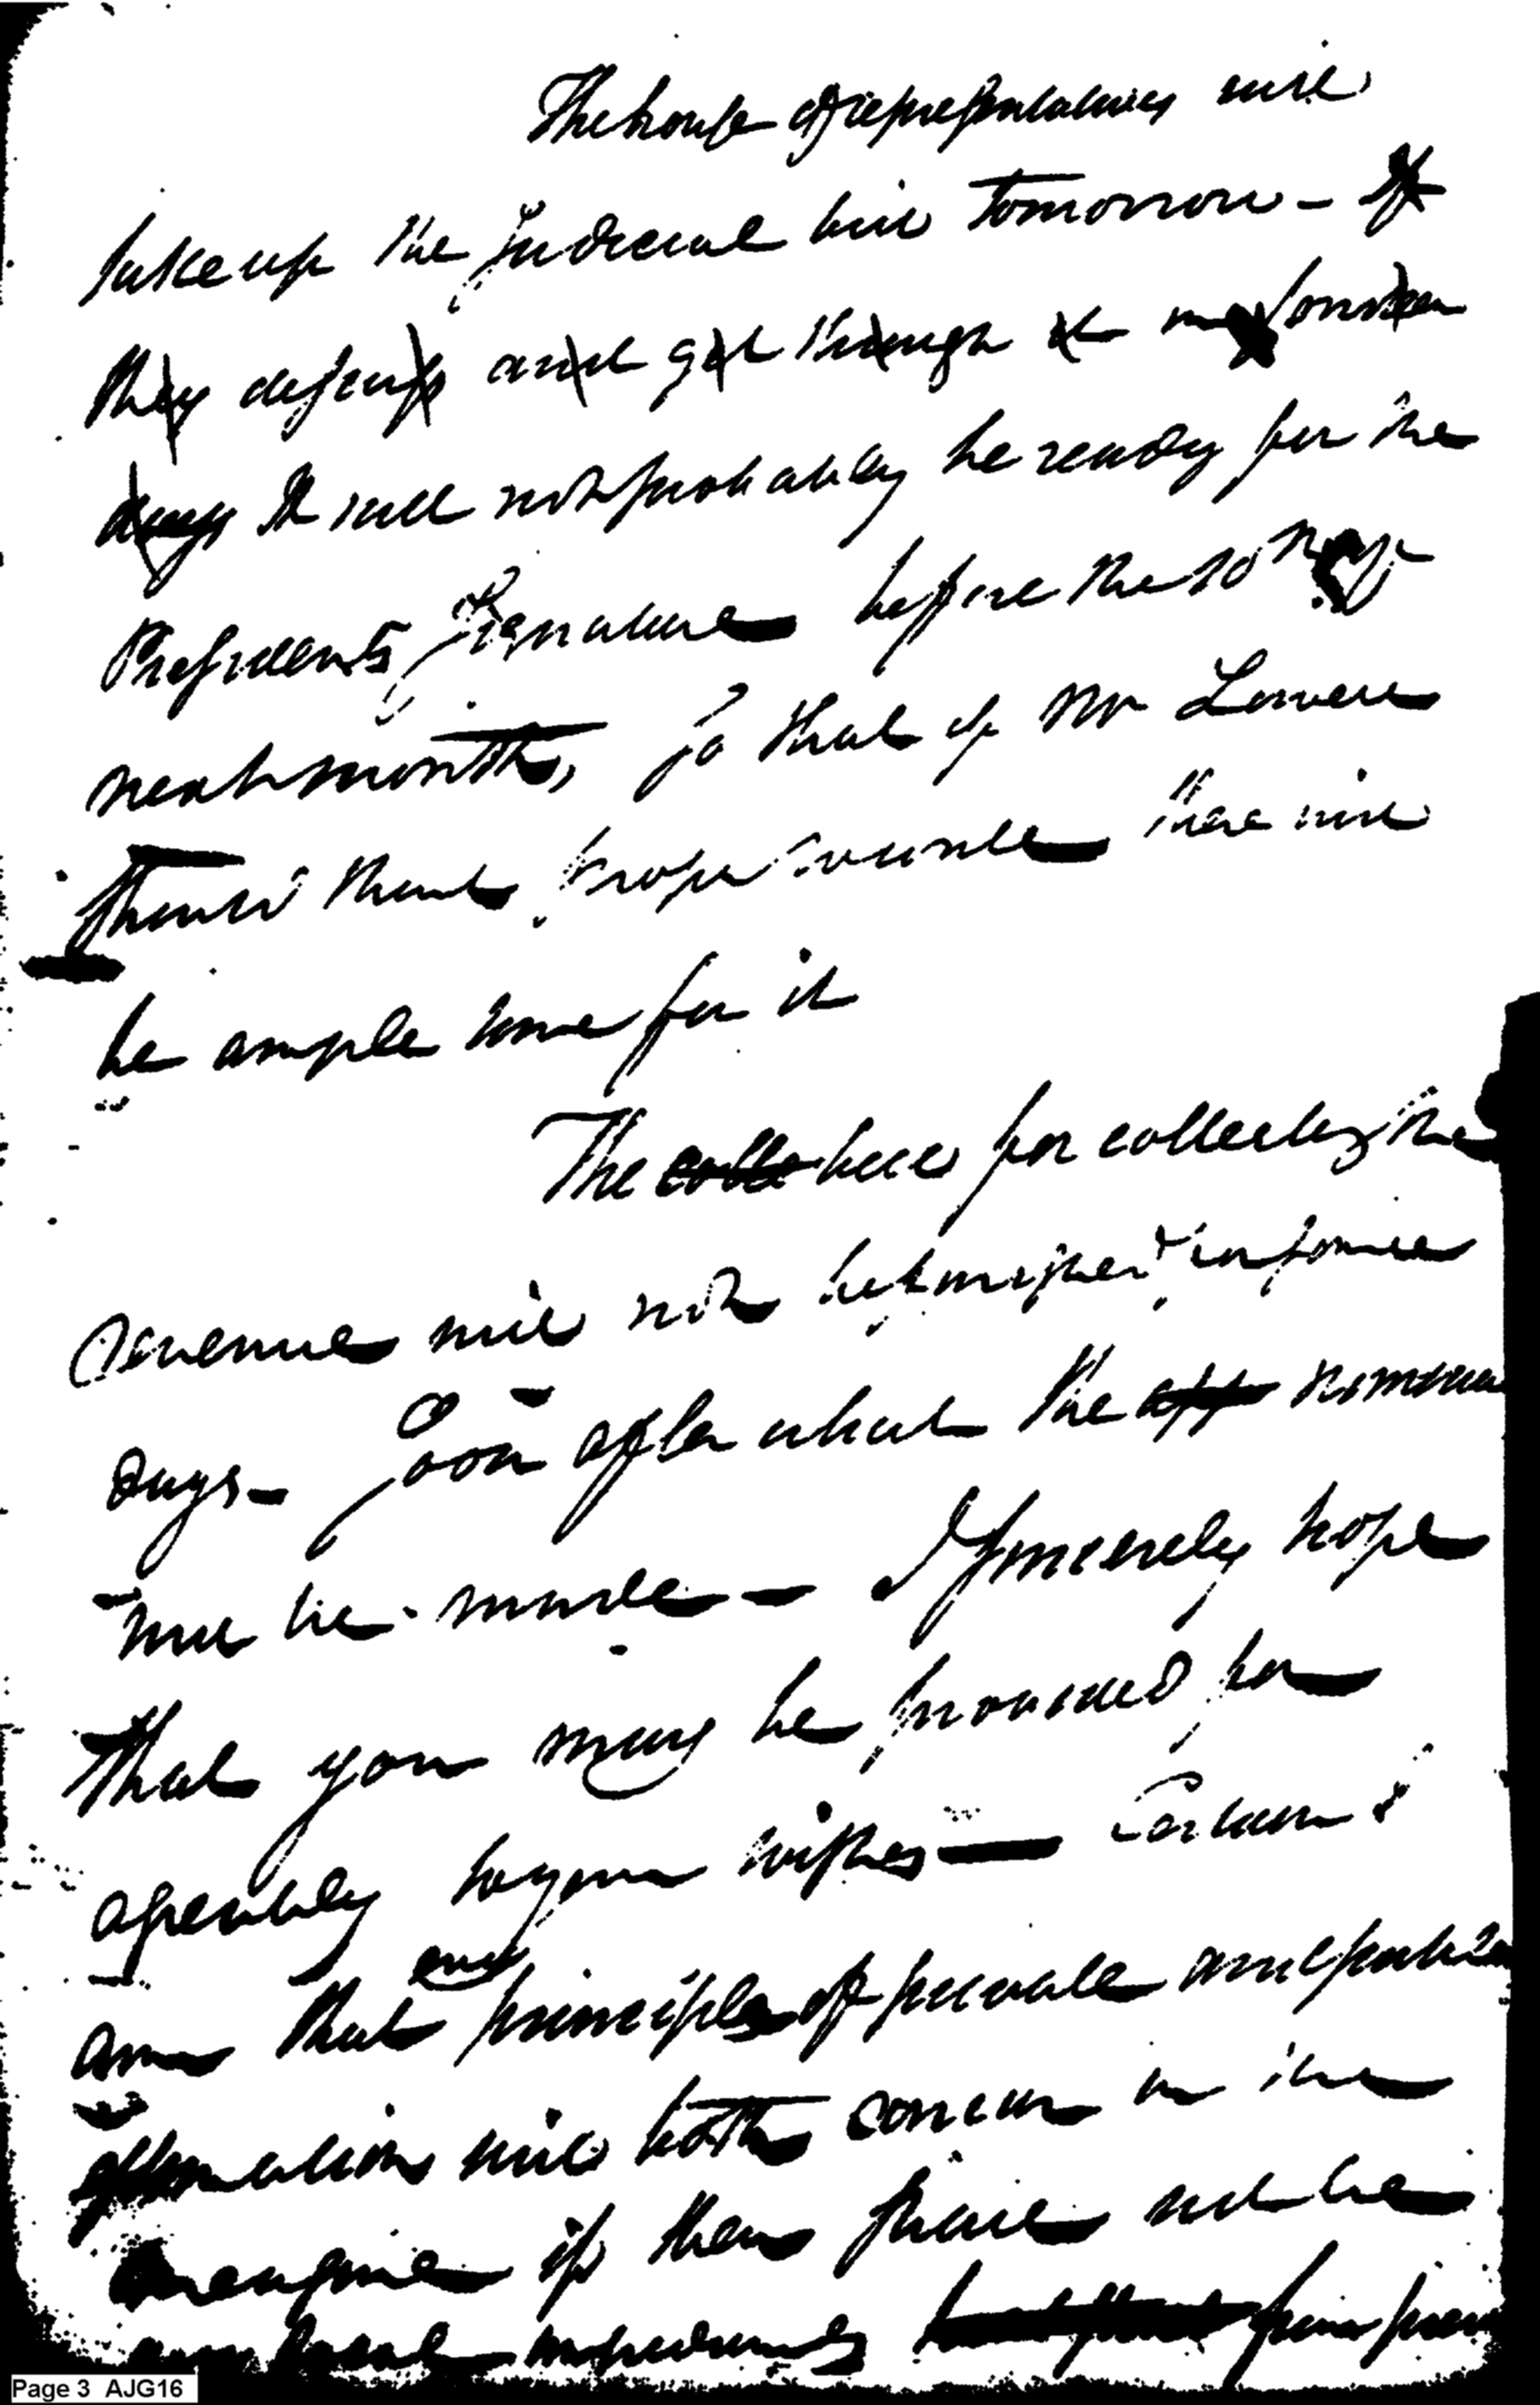 The house of representatives will
take up the Judicial bill tomorrow - If
they defer & get through it in a fortnight
days It will not probably be ready for the
Presidents Signature before the 10th of
next month, so that if Mr Lowell
should think proper there will
be ample time for it
The colle bill for collecting the
Revenue will not be finished in some
days - soon after what the app nominations
will be made - I sincerely hope
that you may be provided for
agreeably to your wishes - Certain I
am that every principle of private and public
will both concur in the
if there should not be
some local
Page 3 AJG16